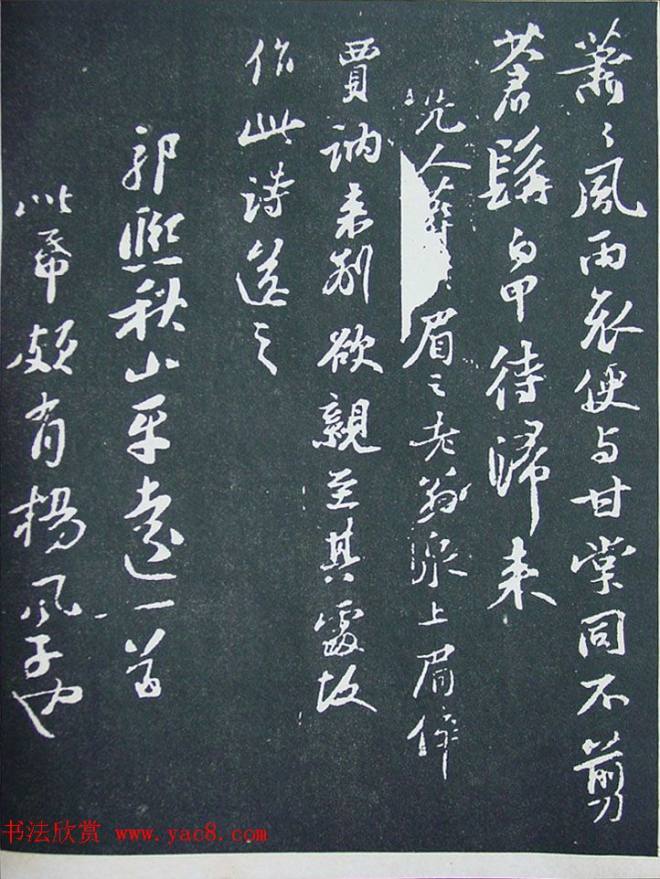 萧〻風雨衣便与甘棠同不剪
蒼髯白甲待歸来
先人葬眉之老翁泉上眉倅
賈訥来别欲親至其處故
作此诗送之
郭熙秋山平遠一首
此帋頗有楊风子也
书法欣赏 www.yac8.com